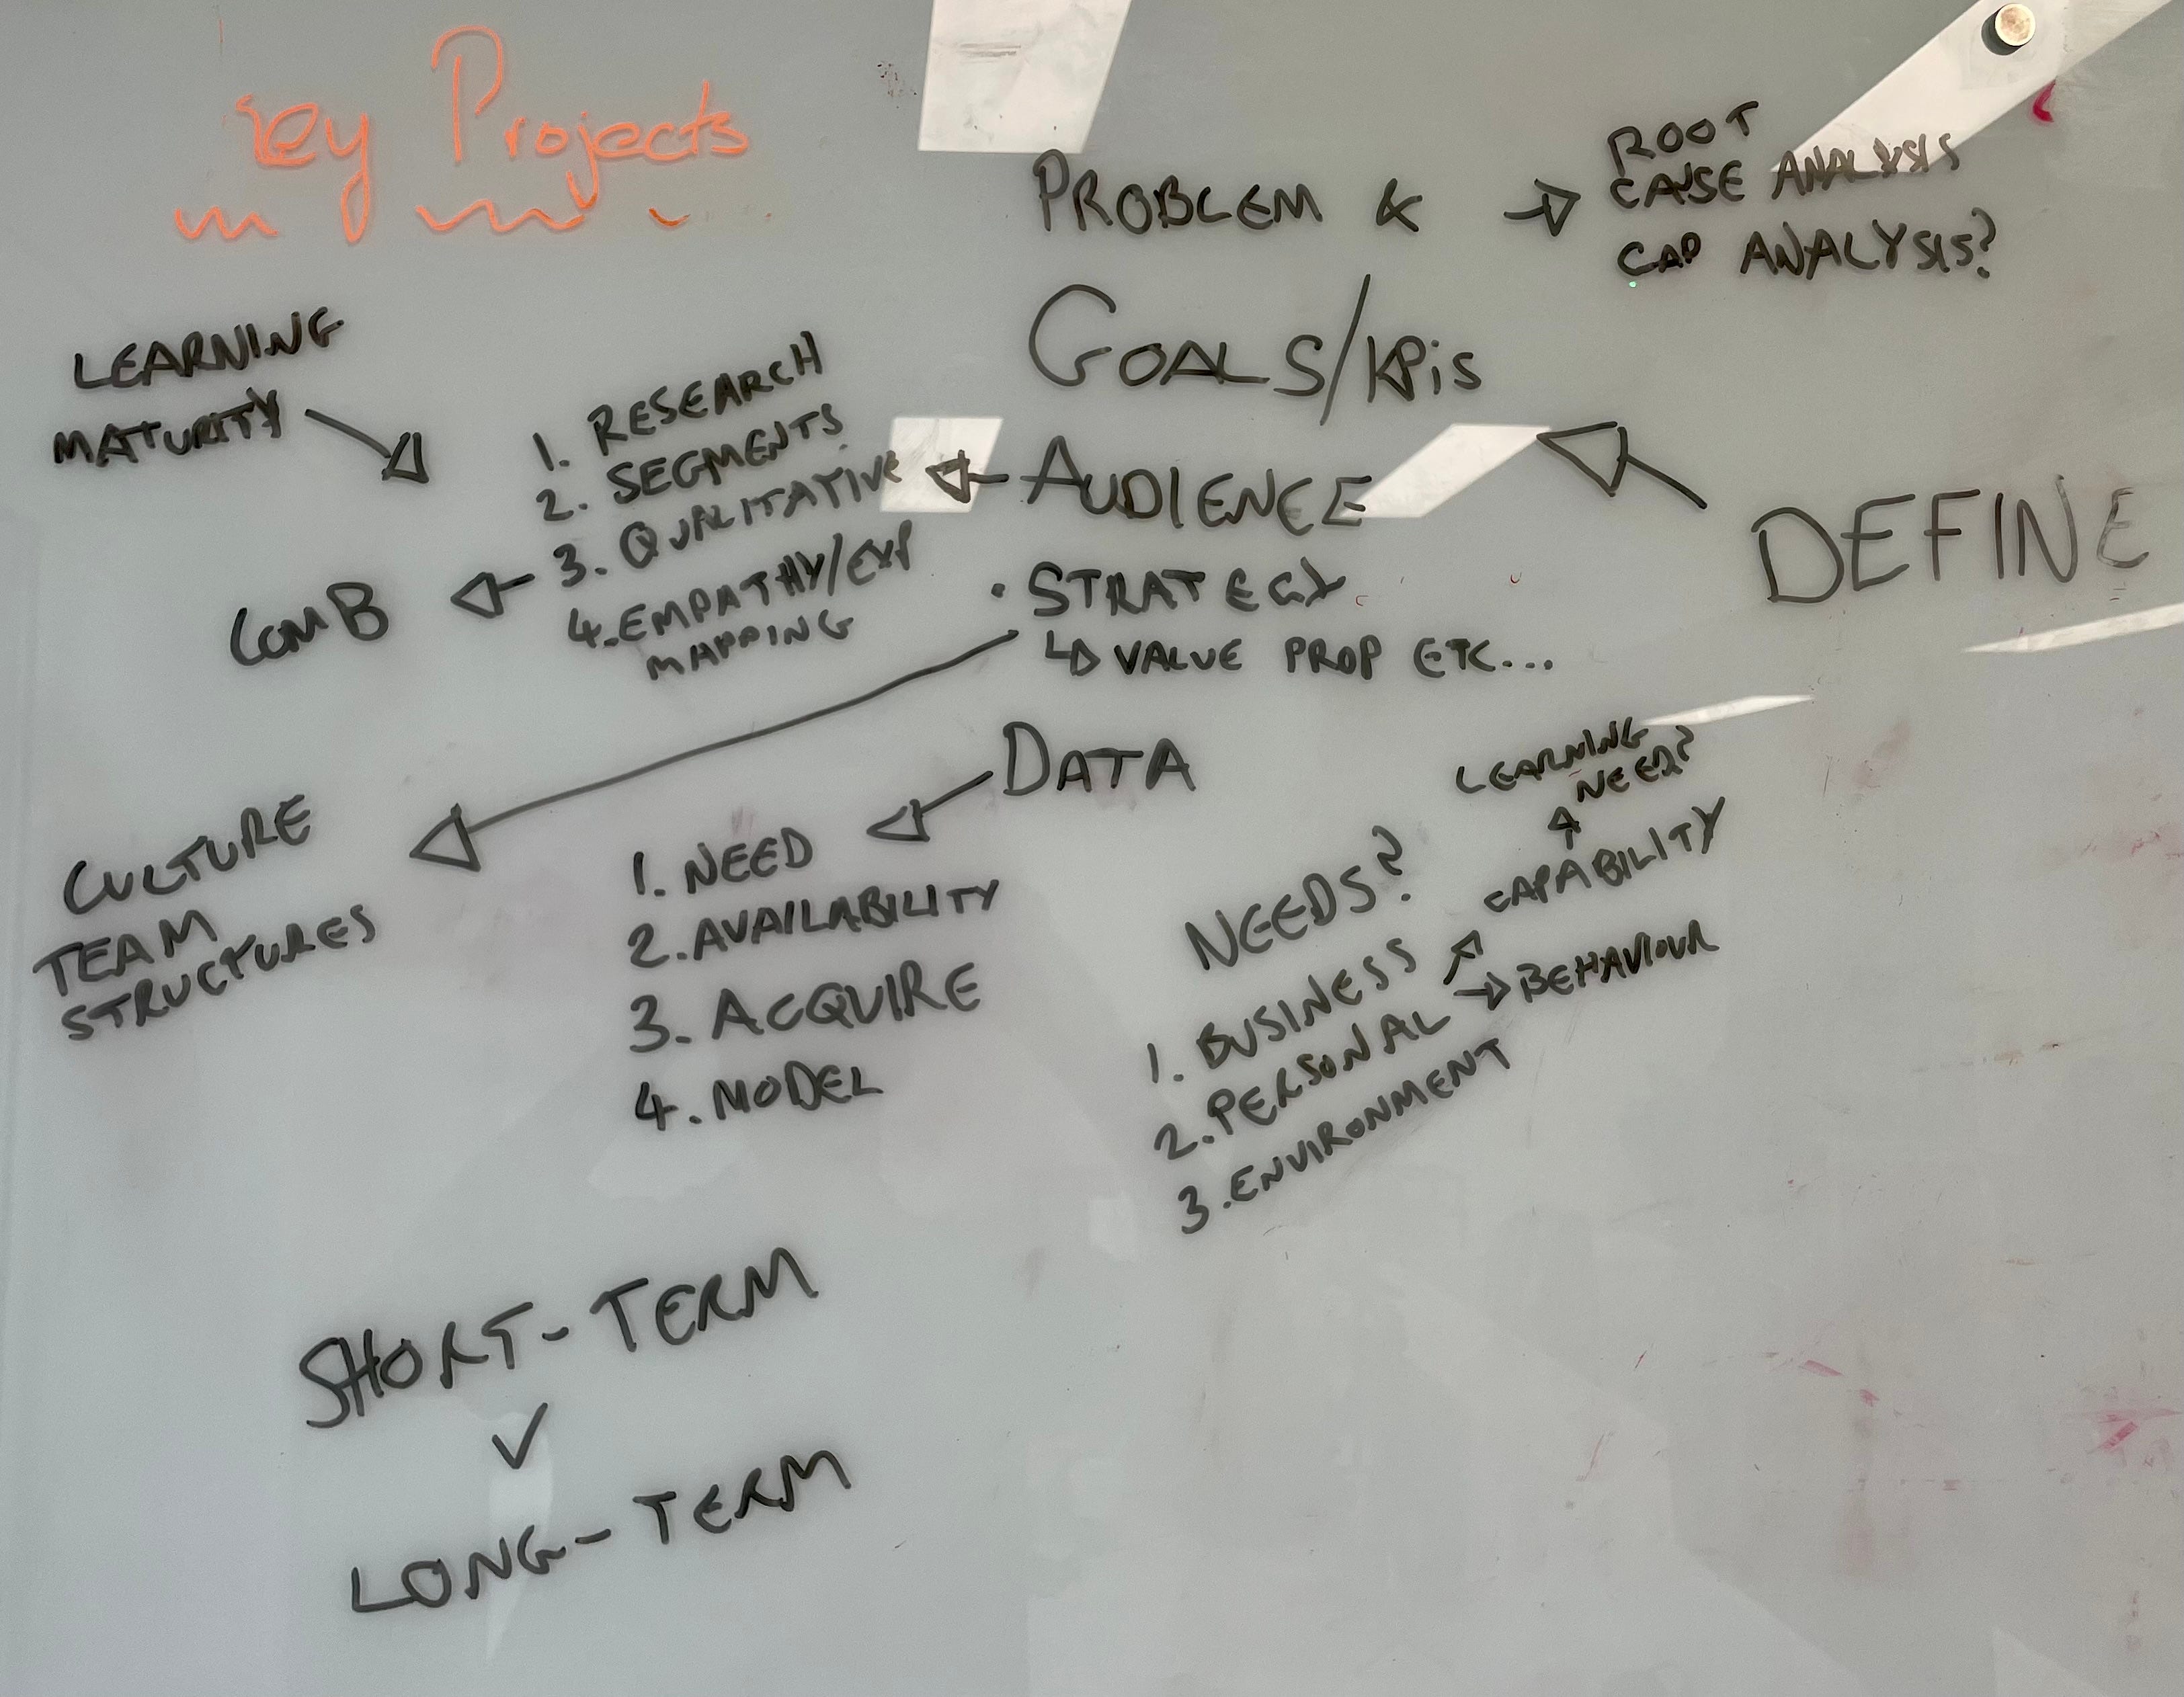 Key Projects
PROBLEM & →
ROOT
CAUSE ANALYSIS
GAP ANALYSIS?
GOALS/KPIs
LEARNING
MATURITY
1. RESEARCH
2. SEGMENTS
3. QUALITATIVE
4. EMPATHY/EXP
MAPPING
← AUDIENCE
DEFINE
COMB ←
• STRATEGY
↳ VALUE PROP ETC...
CULTURE
TEAM
STRUCTURES
DATA
1. NEED
2. AVAILABILITY
3. ACQUIRE
4. MODEL
LEARNING
NEED?
↑
CAPABILITY
NEEDS?
1. BUSINESS ↗
2. PERSONAL → BEHAVIOUR
3. ENVIRONMENT
SHORT-TERM
LONG-TERM